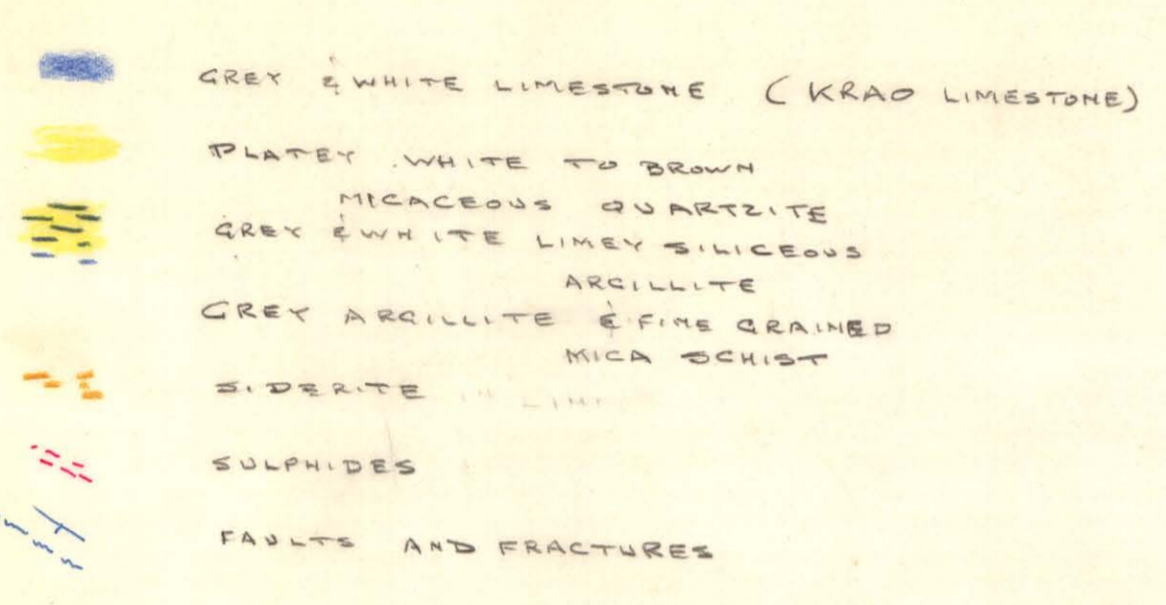 GREY & WHITE LIMESTONE (KRAO LIMESTONE)
PLATEY WHITE TO BROWN
MICACEOUS QUARTZITE
GREY & WHITE LIMEY SILICEOUS
ARGILLITE
GREY ARGILLITE & FINE GRAINED
MICA SCHIST
SIDERITE
SULPHIDES
FAULTS AND FRACTURES